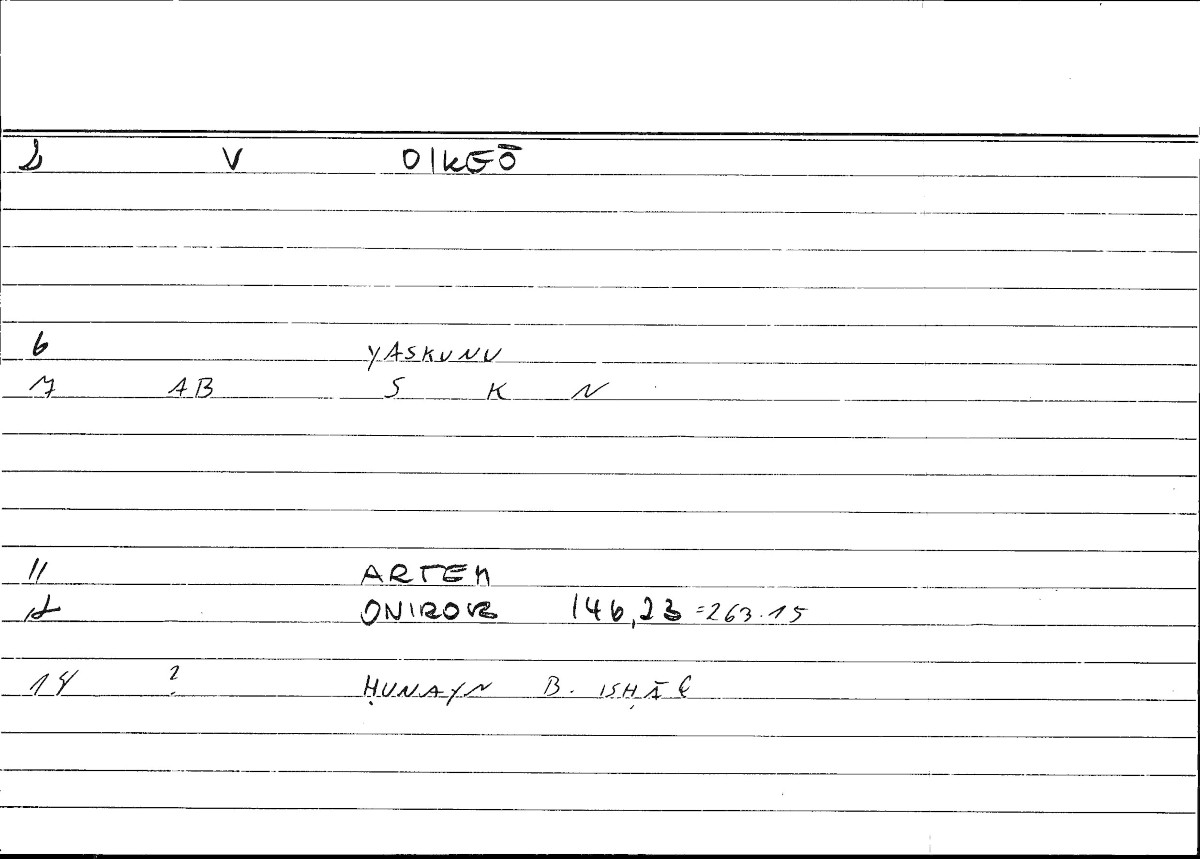 2 V OIKEŌ
6 YASKUNU
7 AB S K N
11 ARTEM
12 ONIROKR 146,23 =263.15
14 ? ḤUNAYN B. ISḤĀQ